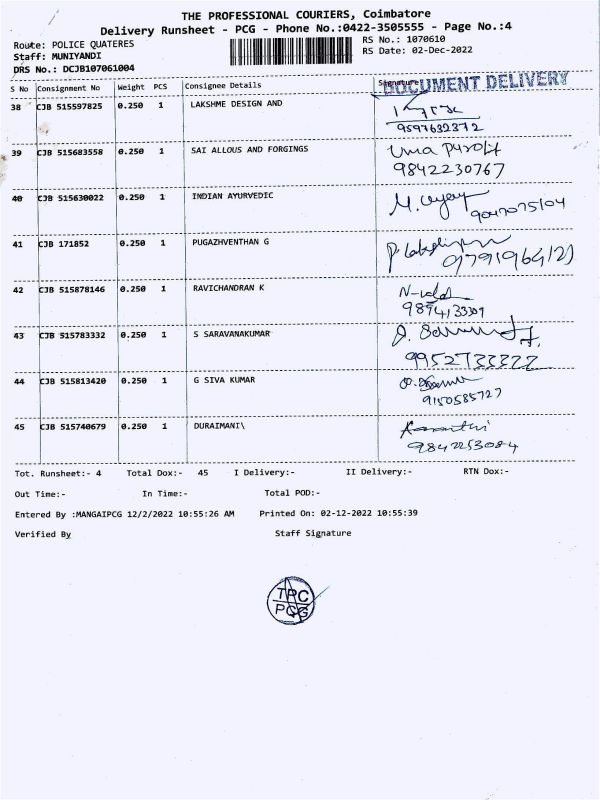 THE PROFESSIONAL COURIERS, Coimbatore
Delivery Runsheet - PCG - Phone No.:0422-3505555 - Page No.:4
Route: POLICE QUATERES
RS No.: 1070610
Staff: MUNIYANDI
RS Date: 02-Dec-2022
DRS No.: DCJB107061004
S No Consignment No Weight PCS Consignee Details Signature
DOCUMENT DELIVERY
38 CJB 515597825 0.250 1 LAKSHME DESIGN AND
9597632372
39 CJB 515683558 0.250 1 SAI ALLOUS AND FORGINGS Uma Purohit
9842230767
40 CJB 515630022 0.250 1 INDIAN AYURVEDIC
41 CJB 171852 0.250 1 PUGAZHVENTHAN G
42 CJB 515878146 0.250 1 RAVICHANDRAN K
43 CJB 515783332 0.250 1 S SARAVANAKUMAR
9952733322
44 CJB 515813420 0.250 1 G SIVA KUMAR
9150585727
45 CJB 515740679 0.250 1 DURAIMANI\
9842253084
Tot. Runsheet:- 4 Total Dox:- 45 I Delivery:- II Delivery:- RTN Dox:-
Out Time:- In Time:- Total POD:-
Entered By :MANGAIPCG 12/2/2022 10:55:26 AM Printed On: 02-12-2022 10:55:39
Verified By Staff Signature
TPC
PCG